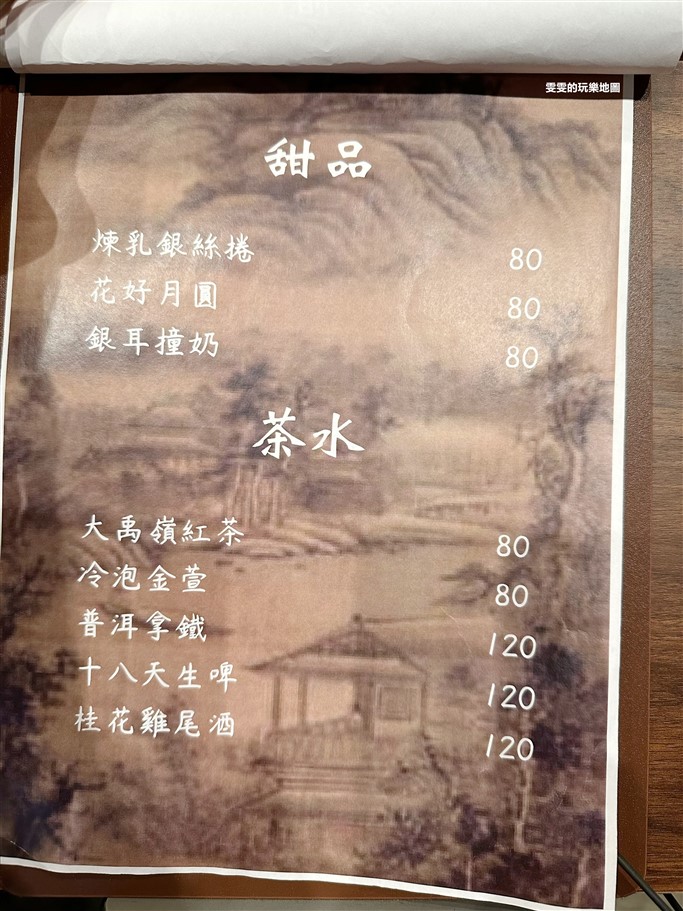 雯雯的玩樂地圖
甜品
煉乳銀絲捲 80
花好月圓 80
銀耳撞奶 80
茶水
大禹嶺紅茶 80
冷泡金萱 80
普洱拿鐵 120
十八天生啤 120
桂花雞尾酒 120